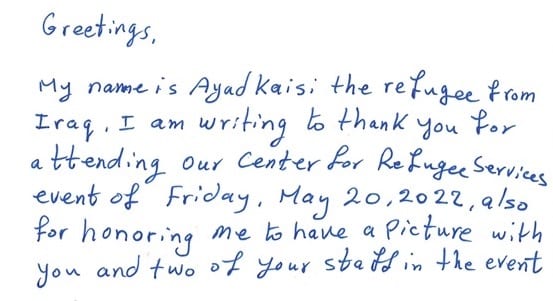 Greetings,
My name is Ayad Kaisi the refugee from
Iraq. I am writing to thank you for
attending our Center for Refugee Services
event of Friday, May 20, 2022, also
for honoring me to have a picture with
you and two of your staff in the event